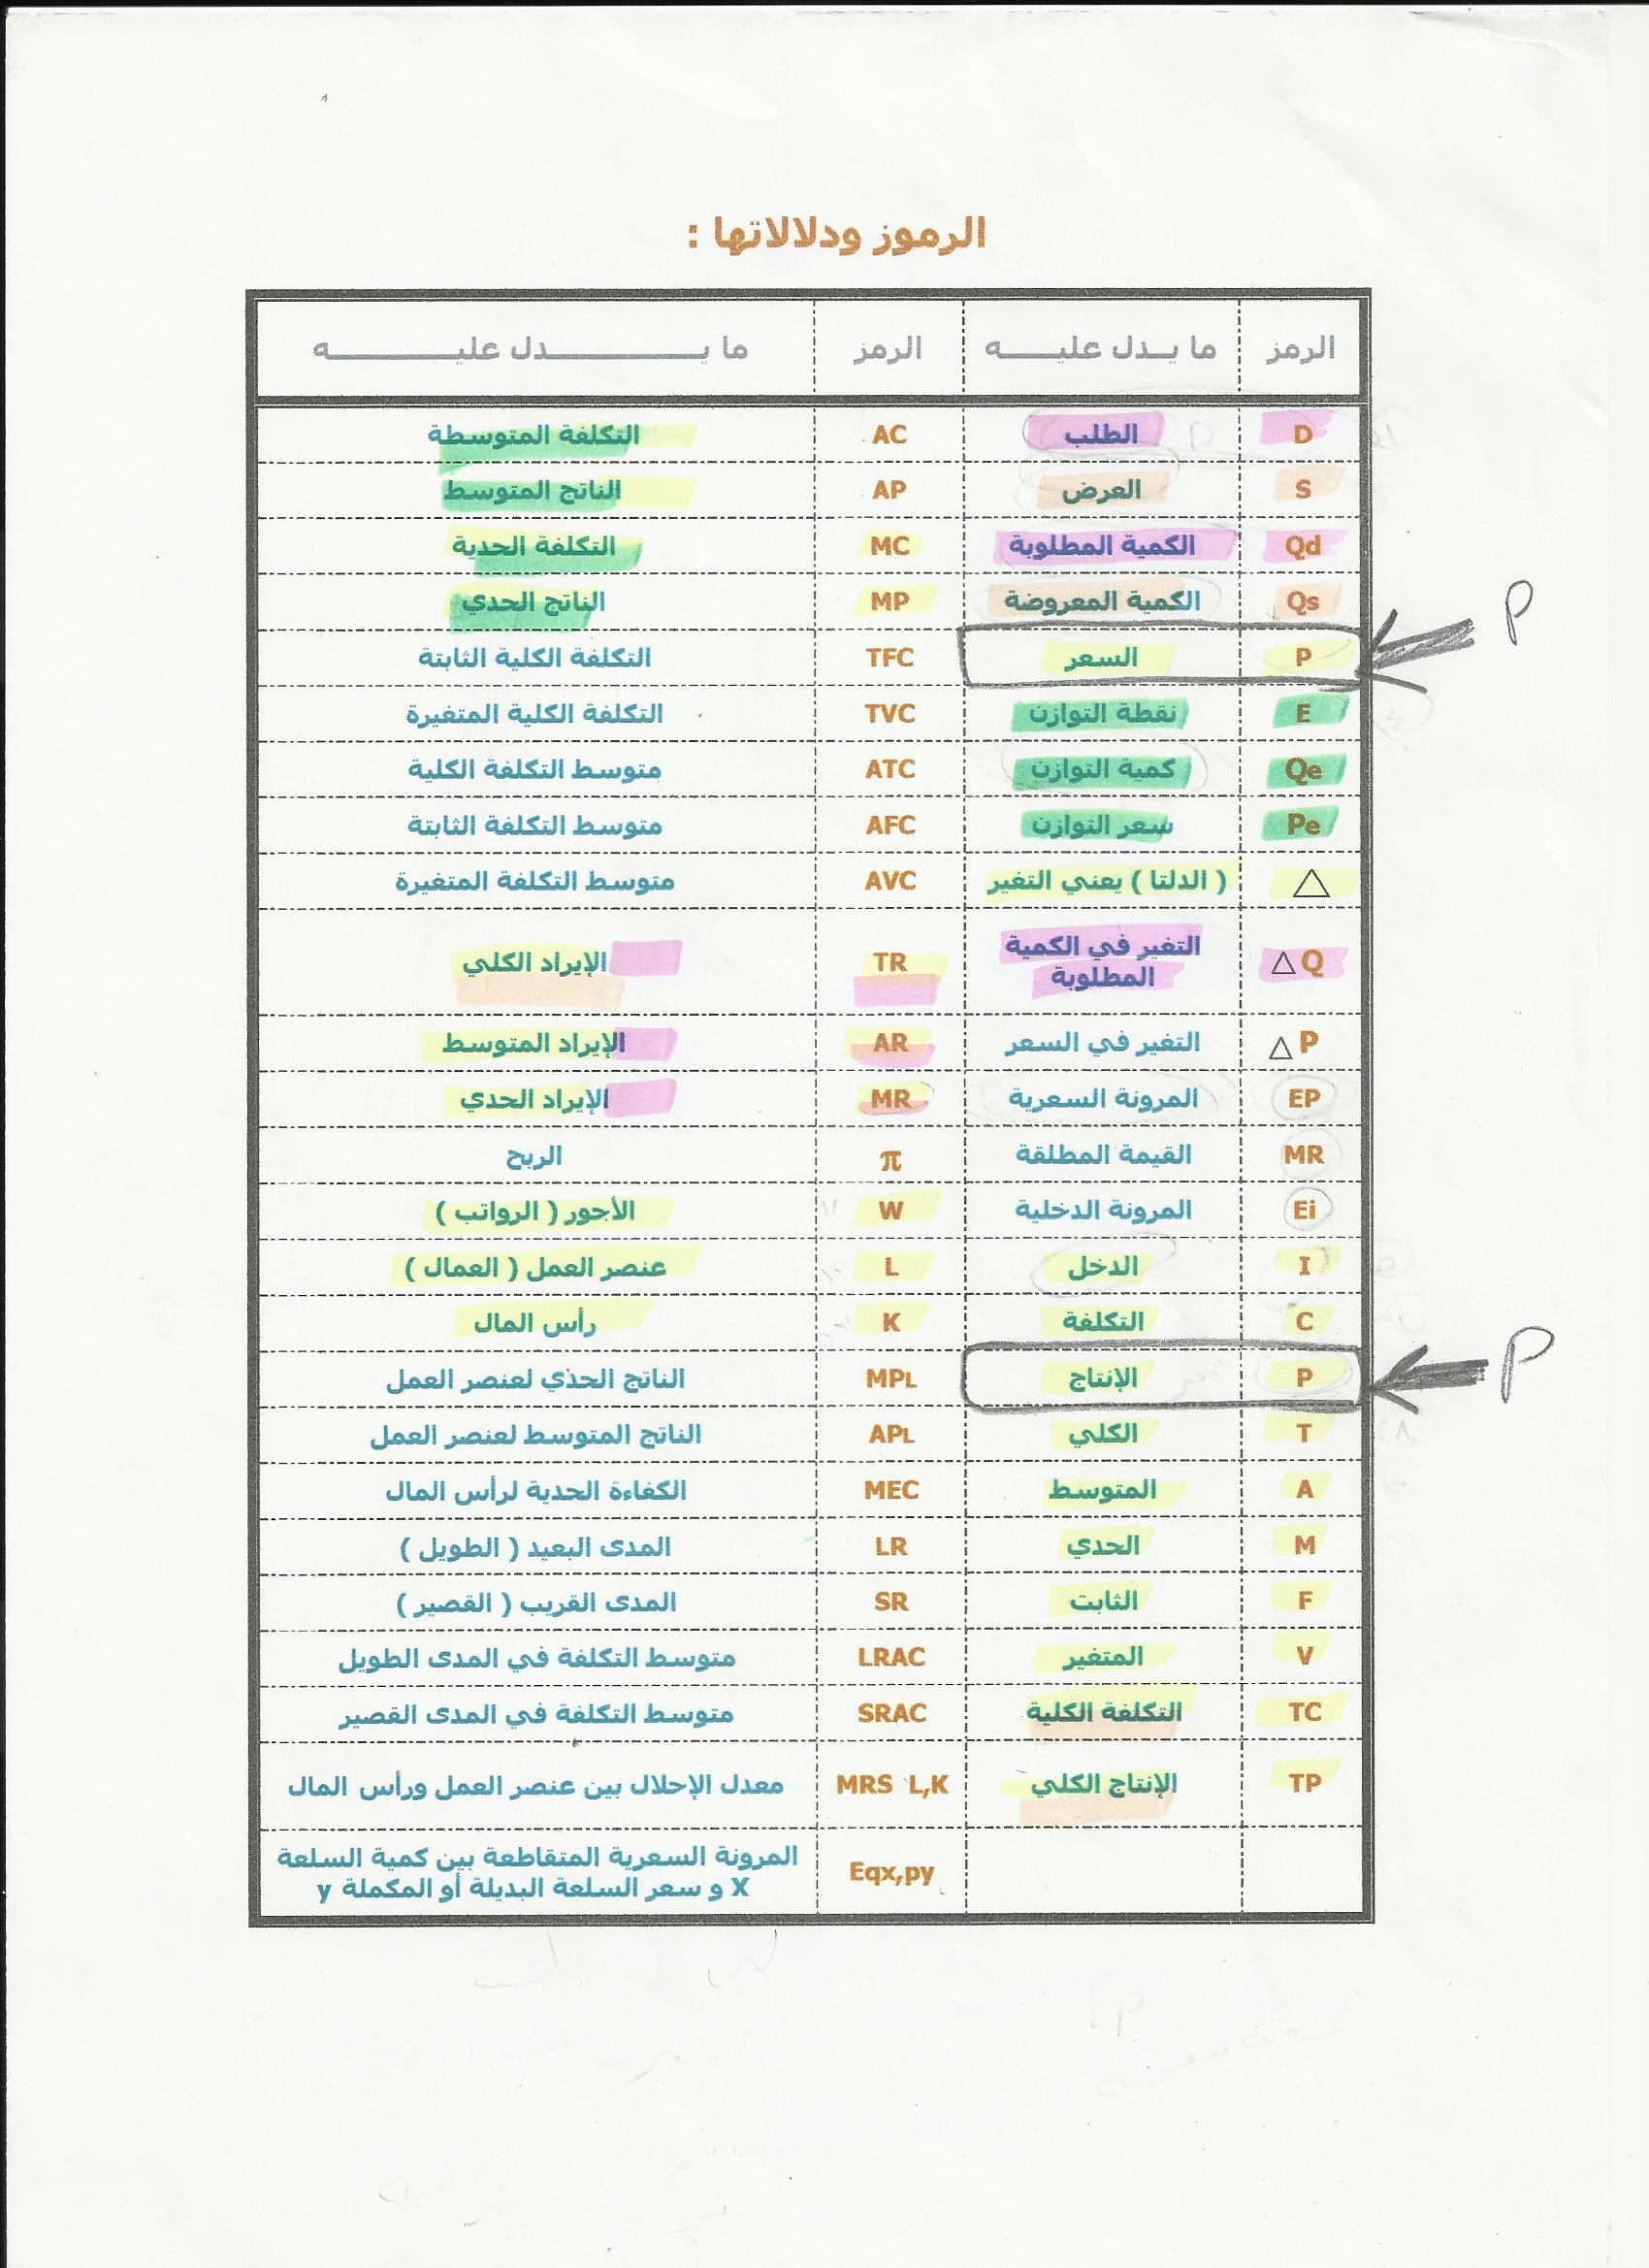 الرموز ودلالاتها :
الرمز ما يــدل عليـــــه الرمز ما يـــــــــــــدل عليـــــــــــــه
D الطلب AC التكلفة المتوسطة
S العرض AP الناتج المتوسط
Qd الكمية المطلوبة MC التكلفة الحدية
Qs الكمية المعروضة MP الناتج الحدي
P
P السعر TFC التكلفة الكلية الثابتة
E نقطة التوازن TVC التكلفة الكلية المتغيرة
Qe كمية التوازن ATC متوسط التكلفة الكلية
Pe سعر التوازن AFC متوسط التكلفة الثابتة
△ ( الدلتا ) يعني التغير AVC متوسط التكلفة المتغيرة
△Q التغير في الكمية
المطلوبة TR الإيراد الكلي
△P التغير في السعر AR الإيراد المتوسط
EP المرونة السعرية MR الإيراد الحدي
MR القيمة المطلقة π الربح
Ei المرونة الدخلية W الأجور ( الرواتب )
I الدخل L عنصر العمل ( العمال )
C التكلفة K رأس المال
P
P الإنتاج MPL الناتج الحذي لعنصر العمل
T الكلي APL الناتج المتوسط لعنصر العمل
A المتوسط MEC الكفاءة الحدية لرأس المال
M الحدي LR المدى البعيد ( الطويل )
F الثابت SR المدى القريب ( القصير )
V المتغير LRAC متوسط التكلفة في المدى الطويل
TC التكلفة الكلية SRAC متوسط التكلفة في المدى القصير
TP الإنتاج الكلي MRS L,K معدل الإحلال بين عنصر العمل ورأس المال
Eqx,py المرونة السعرية المتقاطعة بين كمية السلعة
X و سعر السلعة البديلة أو المكملة y